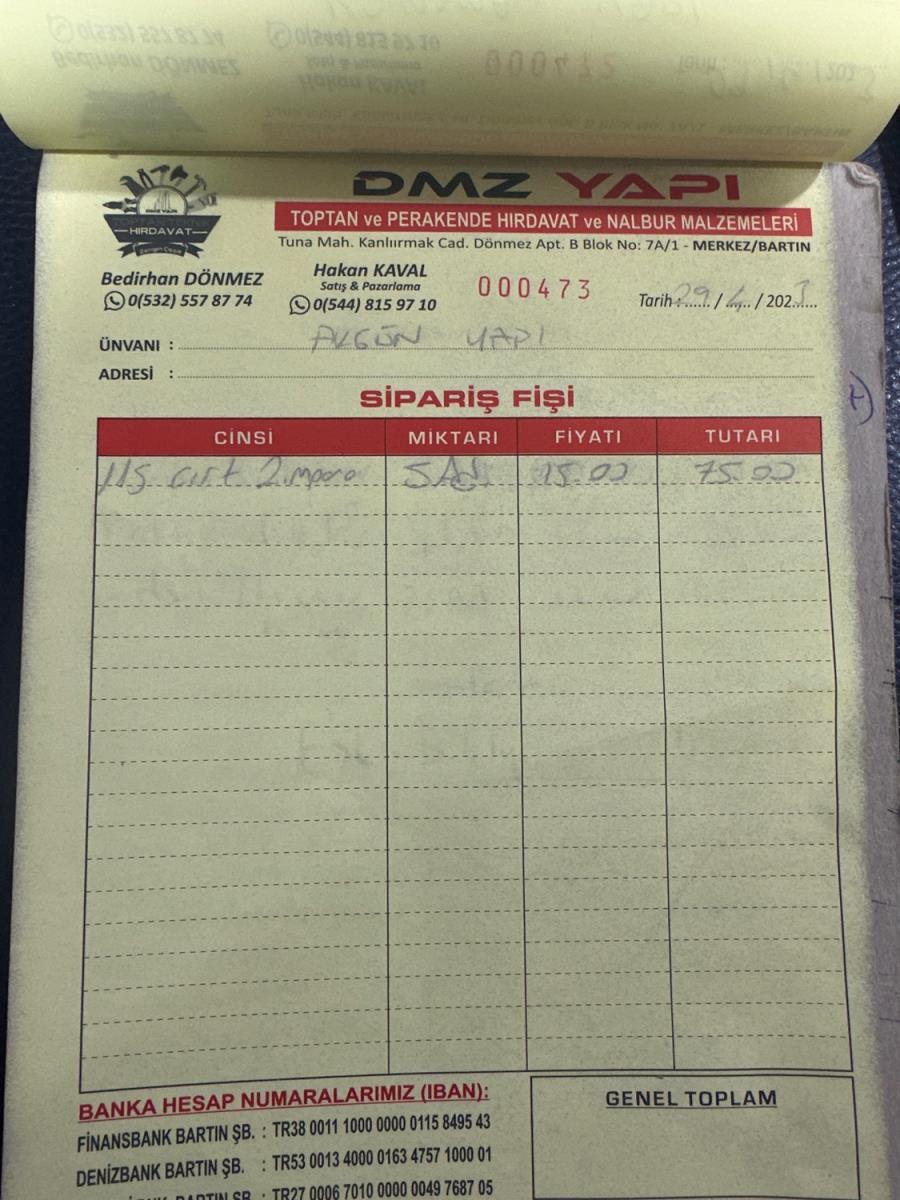 DMZ YAPI
HIRDAVAT
DMZ YAPI
TOPTAN ve PERAKENDE HIRDAVAT ve NALBUR MALZEMELERİ
Tuna Mah. Kanlıırmak Cad. Dönmez Apt. B Blok No: 7A/1 - MERKEZ/BARTIN
Bedirhan DÖNMEZ
0(532) 557 87 74
Hakan KAVAL
Satış & Pazarlama
0(544) 815 97 10
000473
Tarih: 29 / 4 / 2023
ÜNVANI : AKGÜN YAPI
ADRESİ :
SİPARİŞ FİŞİ
CİNSİ MİKTARI FİYATI TUTARI
115 cırt 5 Ad. 15.00 75.00
BANKA HESAP NUMARALARIMIZ (IBAN):
FİNANSBANK BARTIN ŞB. : TR38 0011 1000 0000 0115 8495 43
DENİZBANK BARTIN ŞB. : TR53 0013 4000 0163 4757 1000 01
BARTIN ŞB. : TR27 0006 7010 0000 0049 7687 05
GENEL TOPLAM